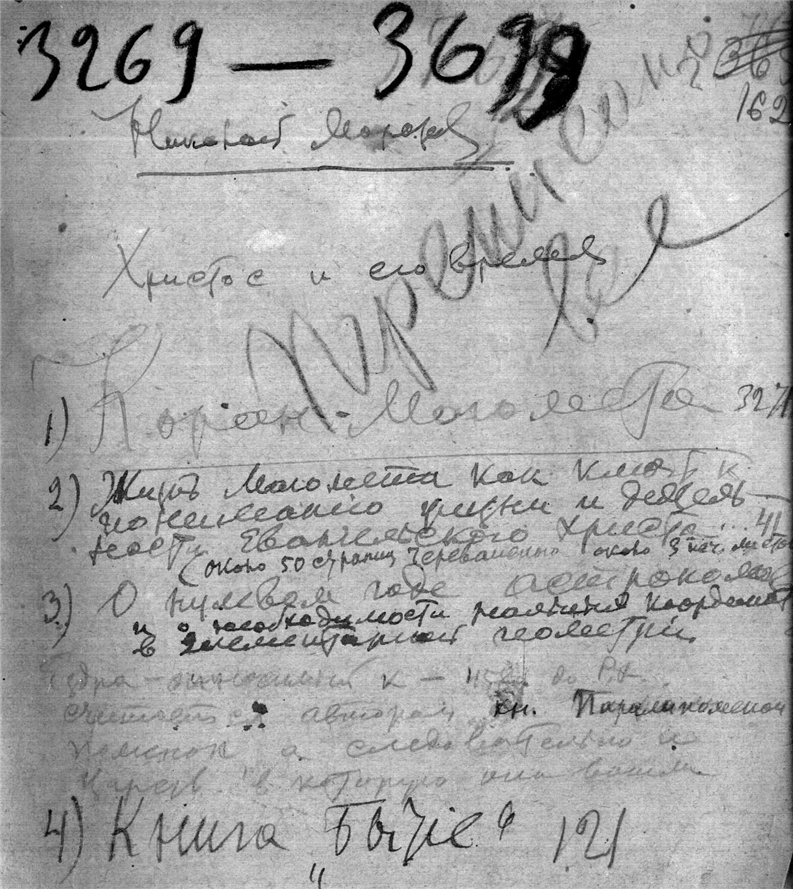 3269 — 3699
365
162
Николай Морозов
Христос и его время
все
1) Коран Магомета 327
2) Жизнь Магомета как ключ к
пониманию жизни и деятель-
ности Евангельского Христа... 41
(около 50 страниц около 3 печ. листов
3) О нулевом годе астрономов
и о необходимости понятия координат
в элементарной геометрии
Ездра - к - до Р.Х.
считается автором кн. Паралипоменон
а следовательно и
Царств в которую они вошли
4) Книга "Бытие" 121